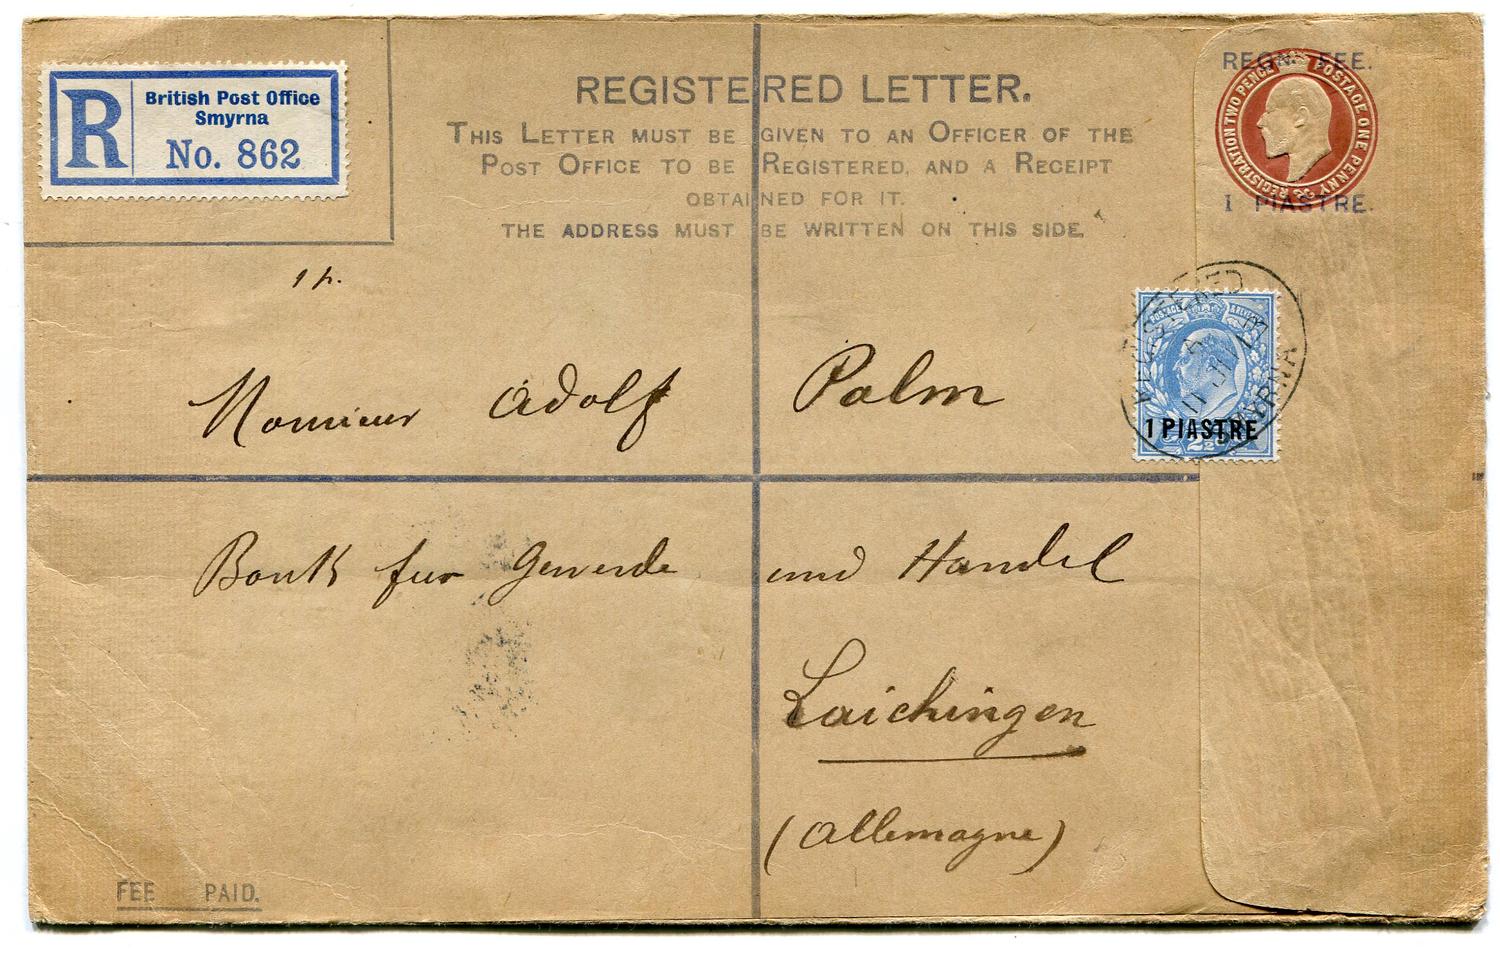 R
British Post Office
Smyrna
No. 862
REGISTERED LETTER.
THIS LETTER MUST BE GIVEN TO AN OFFICER OF THE
POST OFFICE TO BE REGISTERED, AND A RECEIPT
OBTAINED FOR IT.
THE ADDRESS MUST BE WRITTEN ON THIS SIDE.
REGN. FEE.
REGISTRATION TWO PENCE POSTAGE ONE PENNY
1 PIASTRE.
REGISTERED
SMYRNA
POSTAGE & REVENUE
1 PIASTRE
Monsieur Adolf Palm
Bank fur Gewerde und Handel
Laichingen
(Allemagne)
FEE PAID.